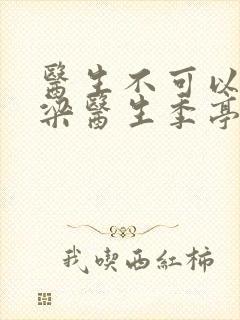 醫生不可以
梁醫生季亭
我喫西紅柿